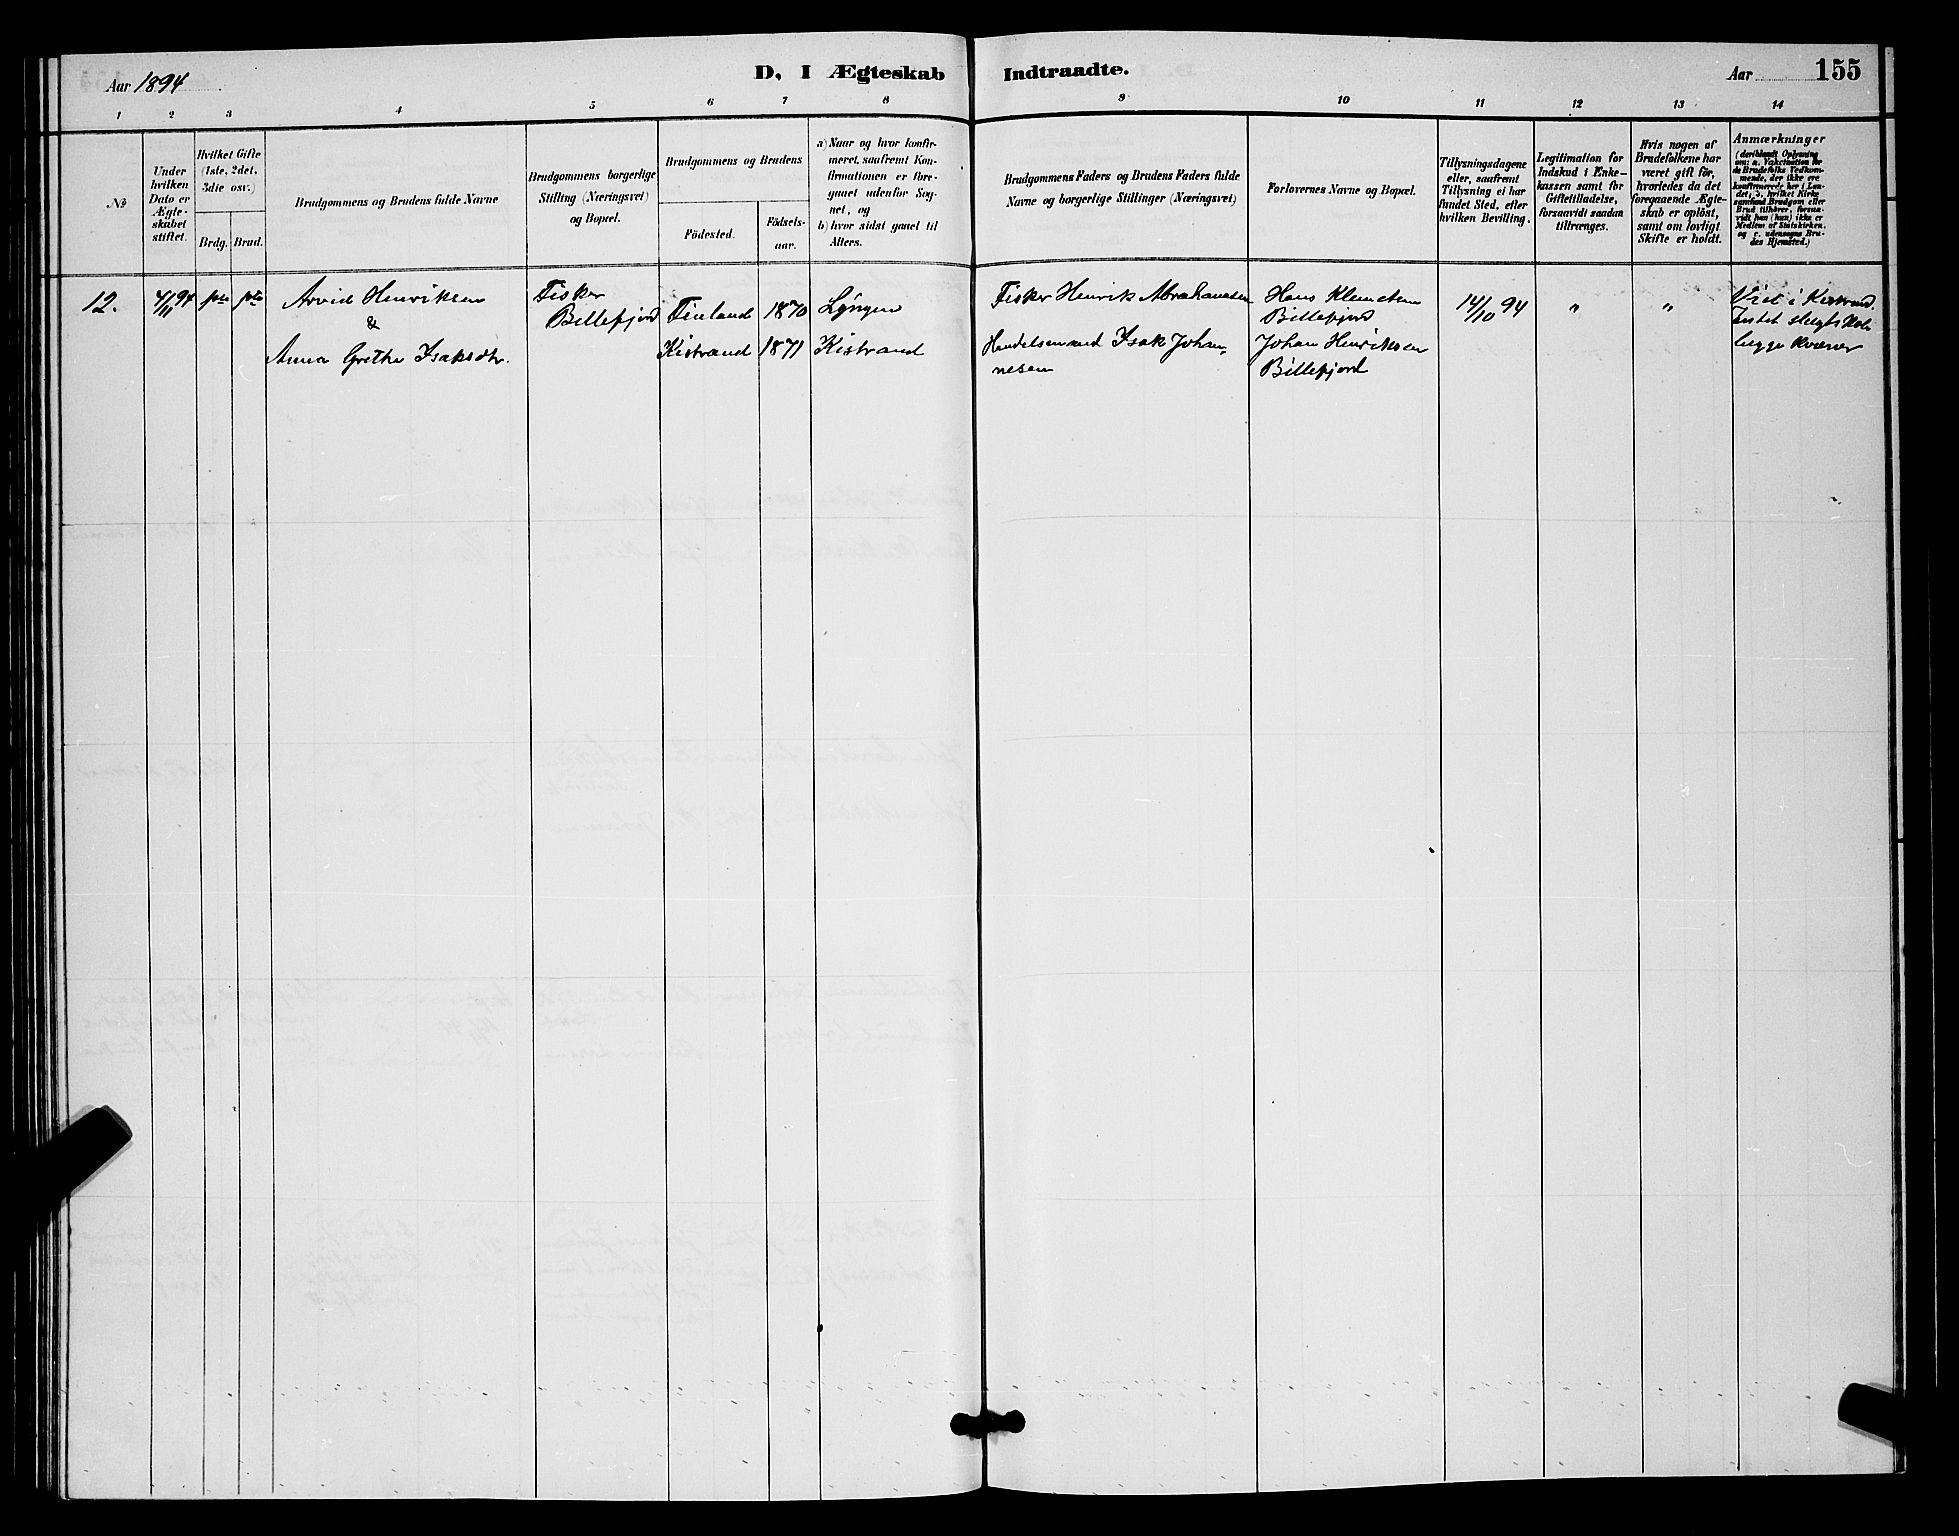 Aar 1894
D, I Ægteskab
Indtraadte.
Aar
155
1 2 3 4 5 6 7 8 9 10 11 12 13 14
No
Under
hvilken
Dato er
Ægte-
skabet
stiftet.
Hvilket Gifte
(1ste, 2det,
3die osv.)
Brdg.
Brud.
Brudgommens og Brudens fulde Navne
Brudgommens borgerlige
Stilling (Næringsvei)
og Bopæl.
Brudgommens og Brudens
Födested.
Födsels-
aar.
a) Naar og hvor konfir-
meret, saafremt Kon-
firmationen er fore-
gaaet udenfor Sog-
net, og
b) hvor sidst gaaet til
Alters.
Brudgommens Faders og Brudens Faders fulde
Navne og borgerlige Stillinger (Næringsvei)
Forlovernes Navne og Bopæl.
Tillysningsdagene
eller, saafremt
Tillysning ei har
fundet Sted, efter
hvilken Bevilling.
Legitimation for
Indskud i Enke-
kassen samt for
Giftetilladelse,
forsaavidt saadan
tiltrænges.
Hvis nogen af
Brudefolkene har
været gift för,
hvorledes da det
foregaaende Ægte-
skab er oplöst,
samt om lovligt
Skifte er holdt.
Anmærkninger
(deriblandt Oplysning
om: a. Vakcination for
de Brudefolks Vedkom-
mende, der ikke ere
konfirmerede her i Lan-
det; b. hvilket Kirke
samfund Brudgom eller
Brud tilhörer, forsaa-
vidt han (hun) ikke er
Medlem af Statskirken,
og c. udensogns Bru-
des Hjemsted.)
12.
4/11 94
Arvid Henriksen
&
Anna Grethe Isaksdtr.
Fisker
Billefjord
Finland 1870 Lyngen
Kistrand 1871 Kistrand
Fisker Henrik Abrahamsen
Handelsmand Isak Johan-
nesen
Hans Klemetsen
Billefjord
Johan Henriksen
Billefjord
14/10 94
"
"
Viet i Kistrand.
Intet
begge kvæner